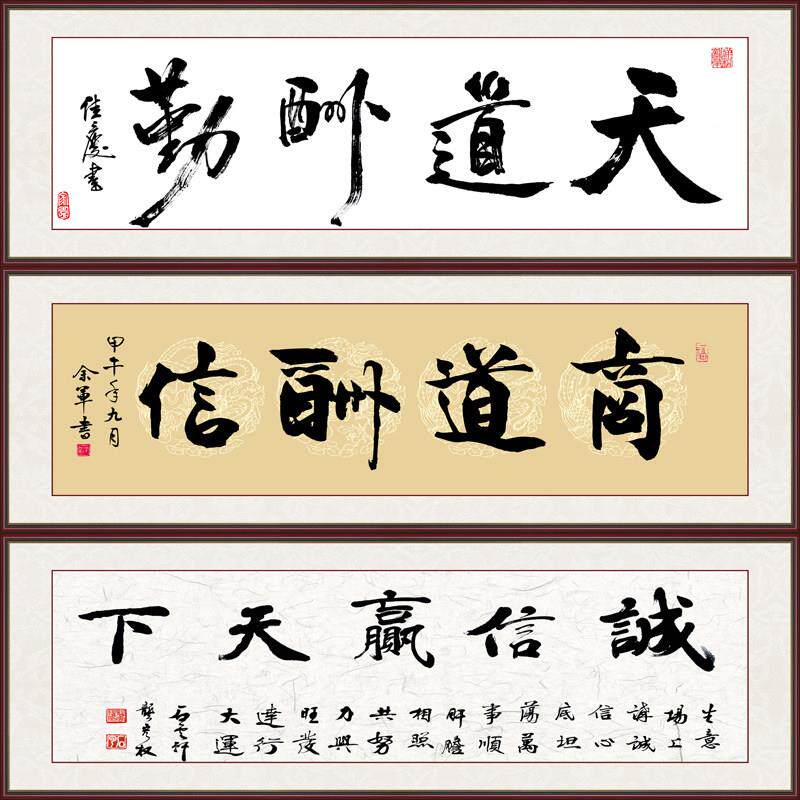 天道酬勤
佳慶書
商道酬信
甲午年九月
余軍書
誠信贏天下
生意
場上
講誠
信心
底坦
蕩萬
事順
肝膽
相照
共努
力興
旺發
達行
大運